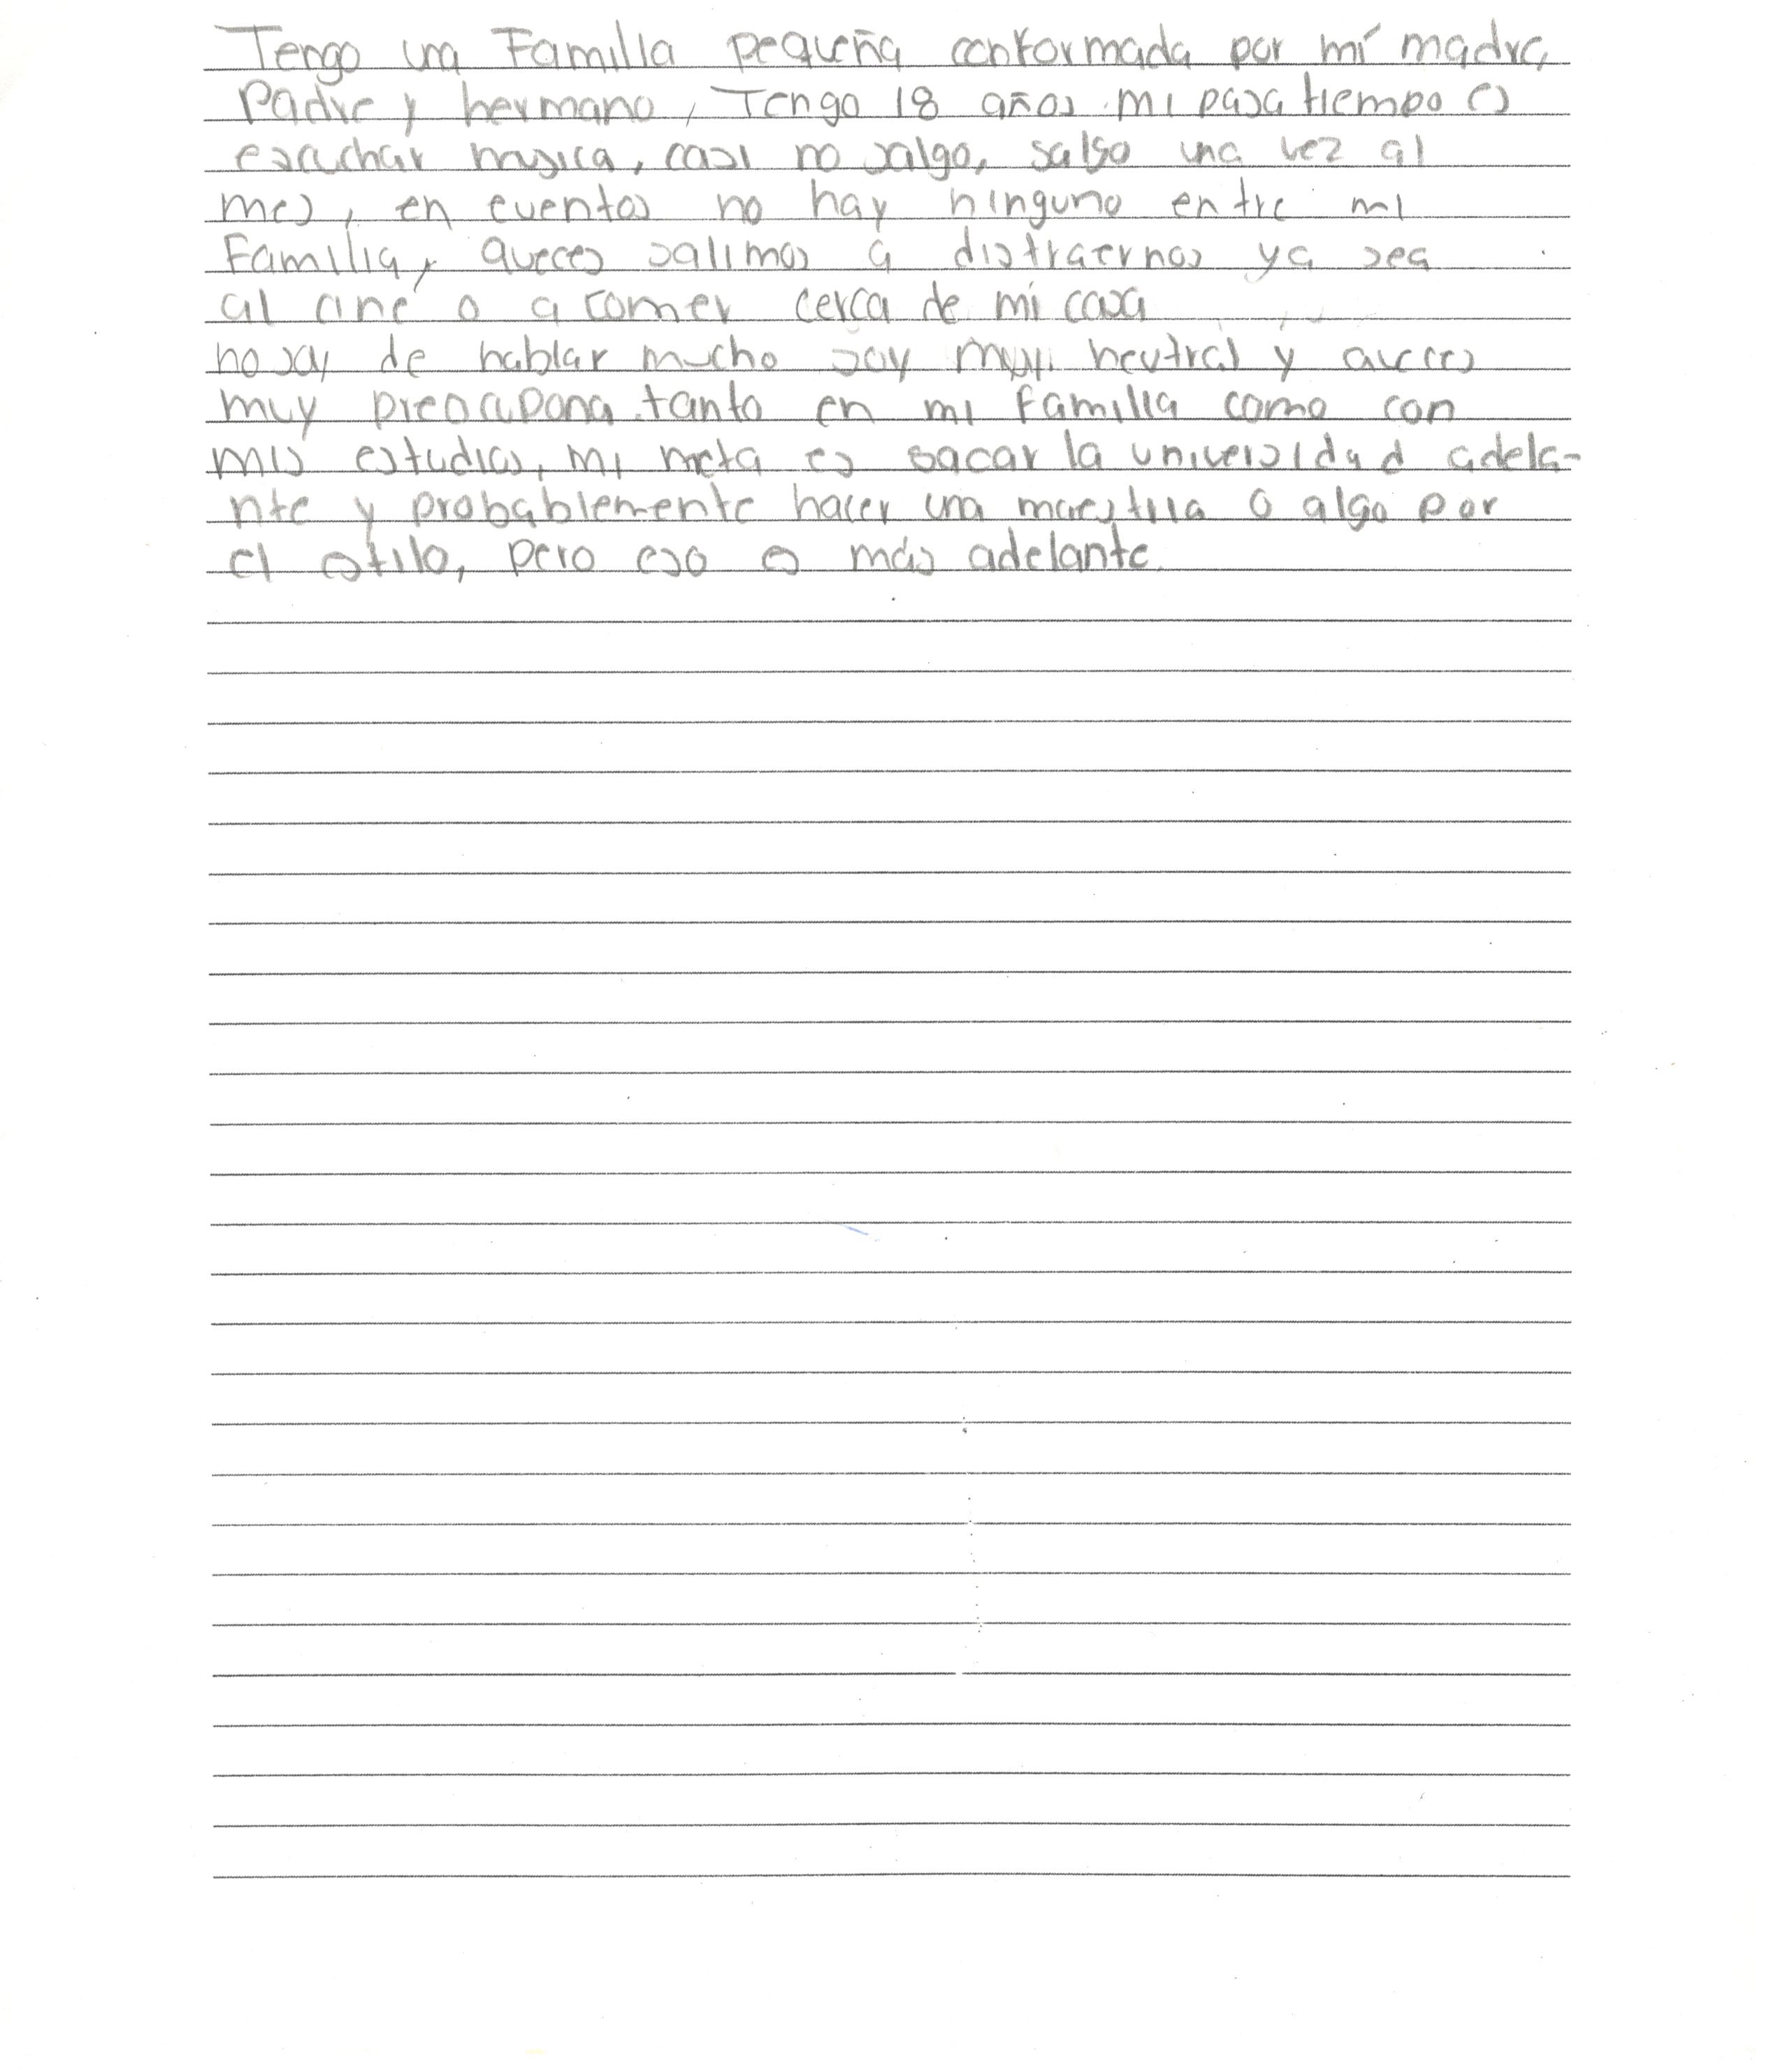 Tengo una Familia pequeña conformada por mí madre,
Padre y hermano, Tengo 18 años mi pasa tiempo es
escuchar musica, casi no salgo, salgo una vez al
mes, en eventos no hay ninguno entre mi
Familia, aveces salimos a distraernos ya sea
al cine o a comer cerca de mi casa
no soy de hablar mucho soy muy neutral y aveces
muy preocupona tanto en mi familia como con
mis estudios, mi meta es sacar la universidad adela-
nte y probablemente hacer una maestria o algo por
el estilo, pero eso es más adelante.